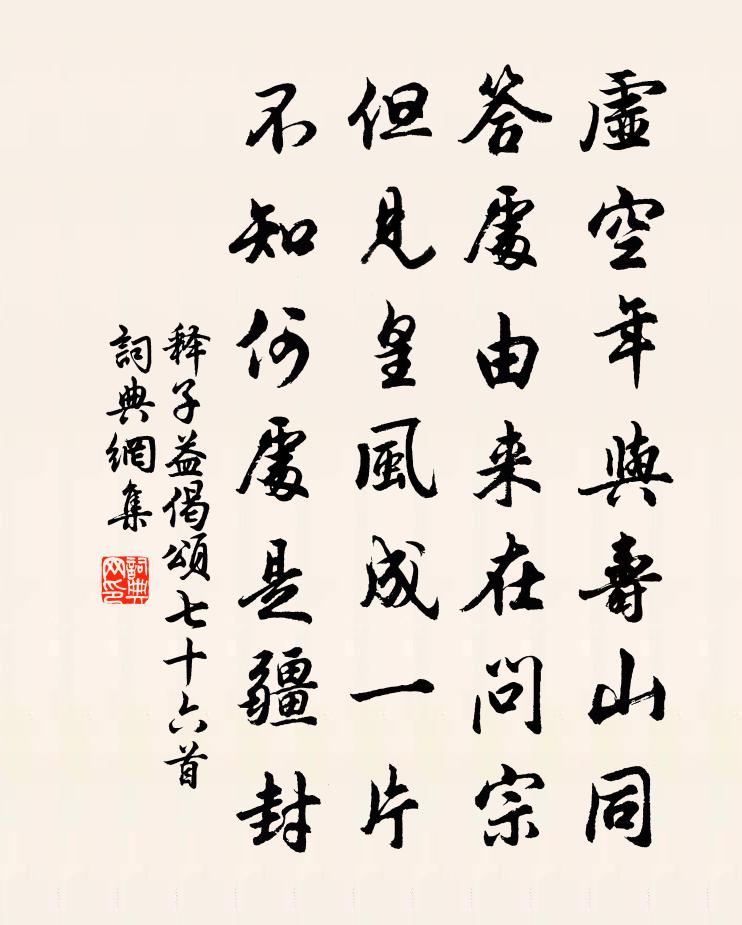 虛空年與壽山同
答處由来在問宗
但見皇風成一片
不知何處是疆封
释子益偈頌七十六首
詞典網集
詞典网印